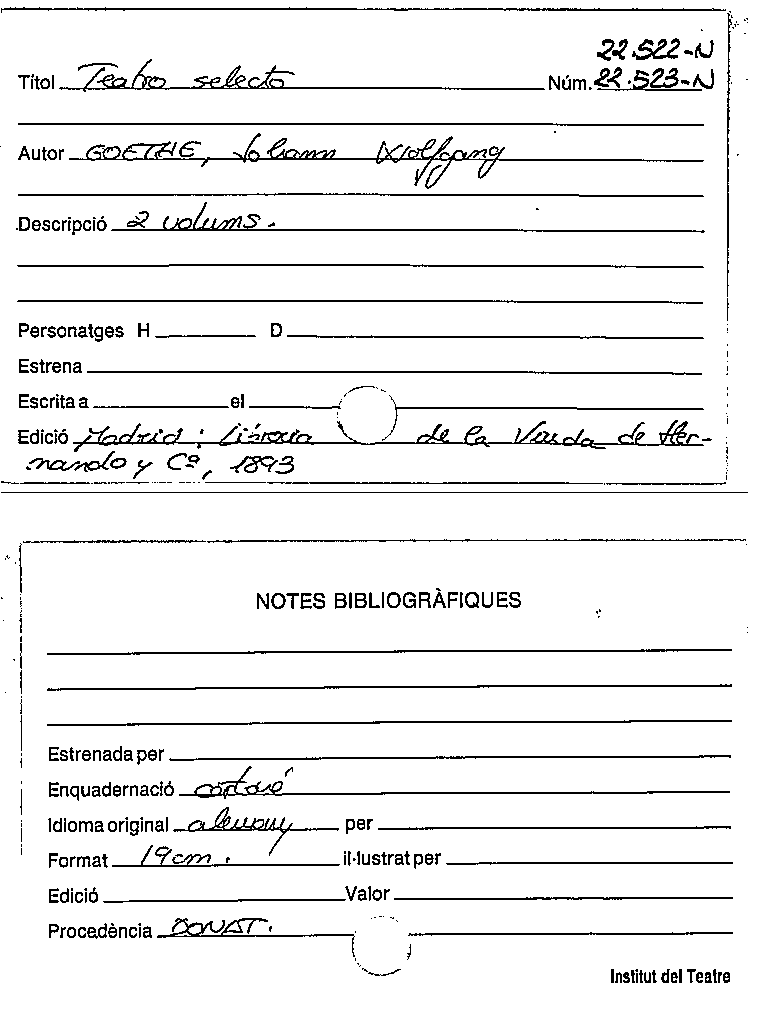 22.522-N
Títol Teatro selecto Núm. 22.523-N
Autor GOETHE, Johann Wolfgang
Descripció 2 volums.
Personatges H D
Estrena
Escrita a el
Edició Madrid: Librería de la Viuda de Her-
nando y Cª, 1893
NOTES BIBLIOGRÀFIQUES
Estrenada per
Enquadernació cartoné
Idioma original alemany per
Format 19 cm. il·lustrat per
Edició Valor
Procedència DONAT.
Institut del Teatre